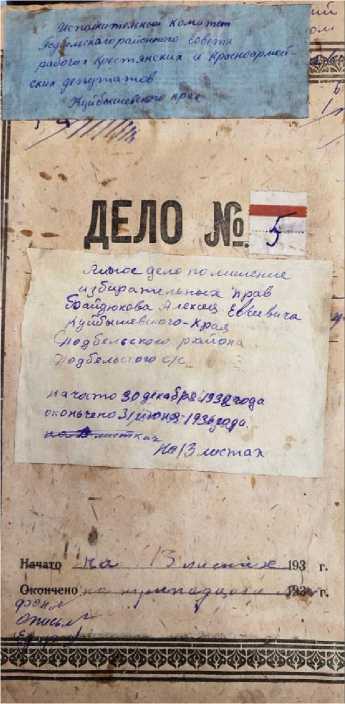 Исполнительный комитет
Подбельского районного совета
рабочих крестьянских и красноармей-
ских депутатов
Куйбышевского края
ДЕЛО № 5
Личное дело по лишению
избирательных прав
Байдюкова Алексея Евсеевича
Куйбышевского-Края
Подбельского района
Подбельского с/с
начато 30 декабря 1932 года
окончено 31 июня 1936 года.
на листках
На 13 листах
Начато на 13 листах 193 г.
Окончено на тринадцати 193 г.
фонд
опись